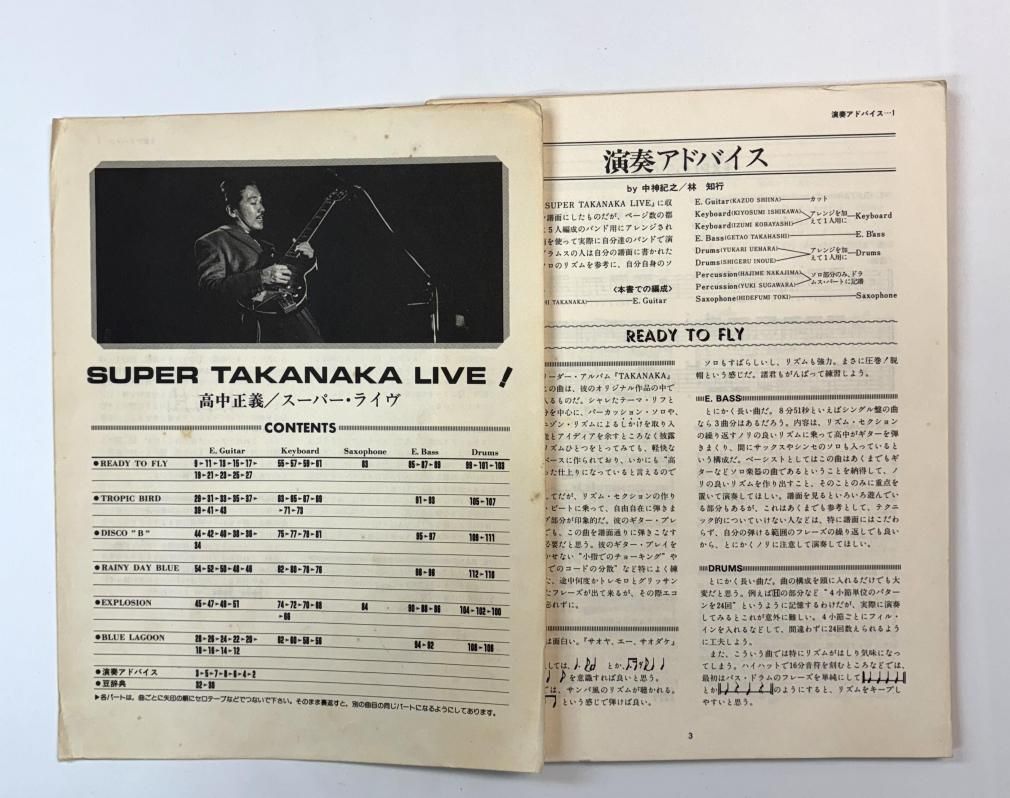 SUPER TAKANAKA LIVE !
高中正義／スーパー・ライヴ
CONTENTS
E. Guitar Keyboard Saxophone E. Bass Drums
●READY TO FLY 9▸11▸13▸15▸17▸ 55▸57▸59▸61 83 85▸87▸89 99▸101▸103
19▸21▸23▸25▸27
●TROPIC BIRD 29▸31▸33▸35▸37▸ 63▸65▸67▸69 91▸93 105▸107
39▸41▸43 ▸71▸73
●DISCO "B" 44▸42▸40▸38▸36▸ 75▸77▸79▸81 95▸97 109▸111
34
●RAINY DAY BLUE 54▸52▸50▸48▸46 82▸80▸78▸76 98▸96 112▸110
●EXPLOSION 45▸47▸49▸51 74▸72▸70▸68 84 90▸88▸86 104▸102▸100
▸66
●BLUE LAGOON 28▸26▸24▸22▸20▸ 62▸60▸58▸56 94▸92 108▸106
18▸16▸14▸12
●演奏アドバイス 3▸5▸7▸8▸6▸4▸2
●豆辞典 32▸30
▶各パートは、曲ごとに矢印の順にセロテープなどでつないで下さい。そのまま裏返すと、別の曲目の同じパートになるようにしてあります。
演奏アドバイス…1
演奏アドバイス
by 中神紀之／林 知行
SUPER TAKANAKA LIVE』に収
譜面にしたものだが、ページ数の都
5人編成のバンド用にアレンジされ
を使って実際に自分達のバンドで演
ラムスの人は自分の譜面に書かれた
ロのリズムを参考に、自分自身のソ
〈本書での編成〉
HI TAKANAKA)—E. Guitar
E. Guitar(KAZUO SHIINA)—カット
Keyboard(KIYOSUMI ISHIKAWA) アレンジを加
Keyboard(IZUMI KOBAYASHI) えて1人用に—Keyboard
E. Bass(GETAO TAKAHASHI)—E. Bass
Drums(YUKARI UEHARA) アレンジを加
Drums(SHIGERU INOUE) えて1人用に—Drums
Percussion(HAJIME NAKAJIMA) ソロ部分のみ、ドラ
Percussion(YUKI SUGAWARA) ムス・パートに記譜
Saxophone(HIDEFUMI TOKI)—Saxophone
READY TO FLY
ーダー・アルバム『TAKANAKA』
の曲は、彼のオリジナル作品の中で
るものだ。シャレたテーマ・リフと
分を中心に、パーカッション・ソロや、
ニゾン・リズムによるしかけを取り入
とアイディアを余すところなく披露
ズムひとつをとってみても、軽快な
ースに作られており、いかにも“高
た仕上りになっていると言えるので
てだが、リズム・セクションの作り
ビートに乗って、自由自在に弾きま
グ部分が印象的だ。彼のギター・プレ
でも、この曲を譜面通りに弾きこなす
要だと思う。彼のギター・プレイを
かせない“小指でのチョーキング”や
でのコードの分散”など特によく練
た、途中何度かトレモロとグリッサン
たフレーズが出て来るが、その際エコ
忘れずに。
は面白い。『サオヤ、エー、サオダケ』
しては、 とか、
を意識すれば良いと思う。
では、サンバ風のリズムが聴かれる。
という感じで弾けば良い。
ソロもすばらしいし、リズムも強力。まさに圧巻！脱
帽という感じだ。諸君もがんばって練習しよう。
E. BASS
とにかく長い曲だ。8分51秒といえばシングル盤の曲
なら3曲分はあるだろう。内容は、リズム・セクション
の繰り返すノリの良いリズムに乗って高中がギターを弾
きまくり、間にサックスやシンセのソロも入っていると
いう構成だ。ベーシストとしてはこの曲はあくまでもギ
ターなどソロ楽器の曲であるということを納得して、ノ
リの良いリズムを作り出すこと、そのことのみに重点を
置いて演奏してほしい。譜面を見るといろいろ遊んでい
る部分もあるが、これはあくまでも参考として、テクニ
ック的についていけない人などは、特に譜面にはこだわ
らず、自分の弾ける範囲のフレーズの繰り返しでも良い
から、とにかくノリに注意して演奏してほしい。
DRUMS
とにかく長い曲だ。曲の構成を頭に入れるだけでも大
変だと思う。例えばHの部分など“4小節単位のパター
ンを24回”というように記憶するわけだが、実際に演奏
してみるとこれが意外に難しい。4小節ごとにフィル・
インを入れるなどして、間違わずに24回数えられるよう
に工夫しよう。
また、こういう曲では特にリズムがはしり気味になっ
てしまう。ハイハットで16分音符を刻むところなどでは、
最初はバス・ドラムのフレーズを単純にして
とか のようにすると、リズムをキープし
やすいと思う。
3